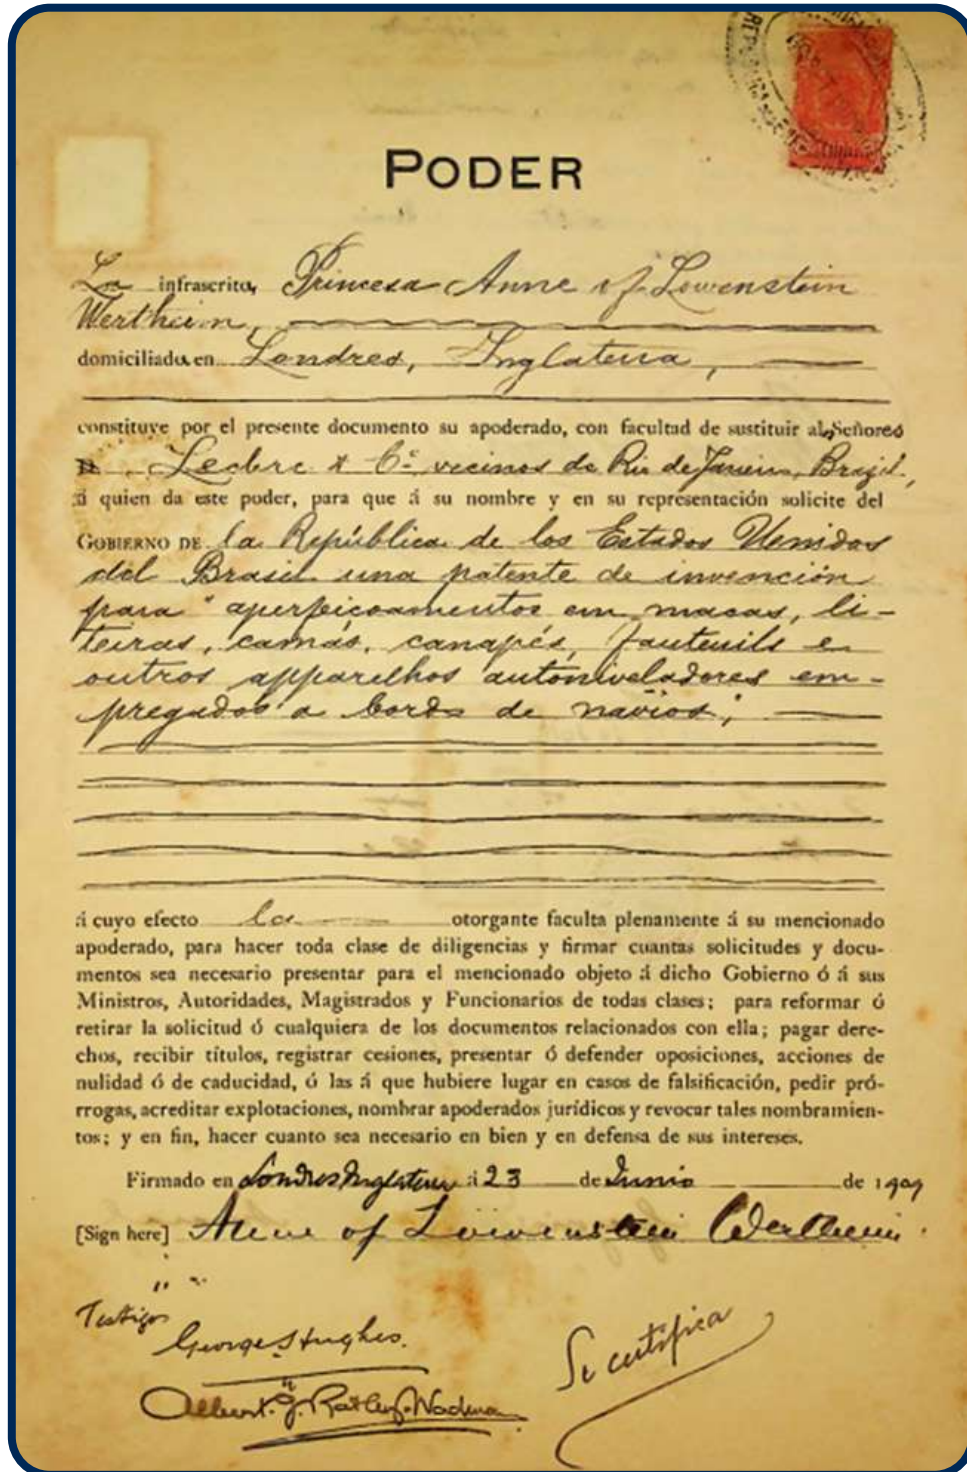 PODER
La infrascrita, Princesa Anne of Lowenstein
Wertheim,
domiciliada en Londres, Inglaterra,
constituye por el presente documento su apoderado, con facultad de sustituir al Señores
Leclerc & Cº. vecinos de Rio de Janeiro, Brazil,
á quien da este poder, para que á su nombre y en su representación solicite del
GOBIERNO DE la República de los Estados Unidos
del Brasil una patente de invención
para "aperfeicoamentos em macas, li-
teiras, camas, canapés, fauteuils e
outros apparelhos autoniveladores em-
pregados a bordo de navios",
á cuyo efecto la otorgante faculta plenamente á su mencionado
apoderado, para hacer toda clase de diligencias y firmar cuantas solicitudes y docu-
mentos sea necesario presentar para el mencionado objeto á dicho Gobierno ó á sus
Ministros, Autoridades, Magistrados y Funcionarios de todas clases; para reformar ó
retirar la solicitud ó cualquiera de los documentos relacionados con ella; pagar dere-
chos, recibir títulos, registrar cesiones, presentar ó defender oposiciones, acciones de
nulidad ó de caducidad, ó las á que hubiere lugar en casos de falsificación, pedir pró-
rrogas, acreditar explotaciones, nombrar apoderados jurídicos y revocar tales nombramien-
tos; y en fin, hacer cuanto sea necesario en bien y en defensa de sus intereses.
Firmado en Londres Inglaterra á 23 de Junio de 1909
[Sign here] Anne of Löwenstein Wertheim.
Testigos
George Hughes.
Albert. J.
Se certifica